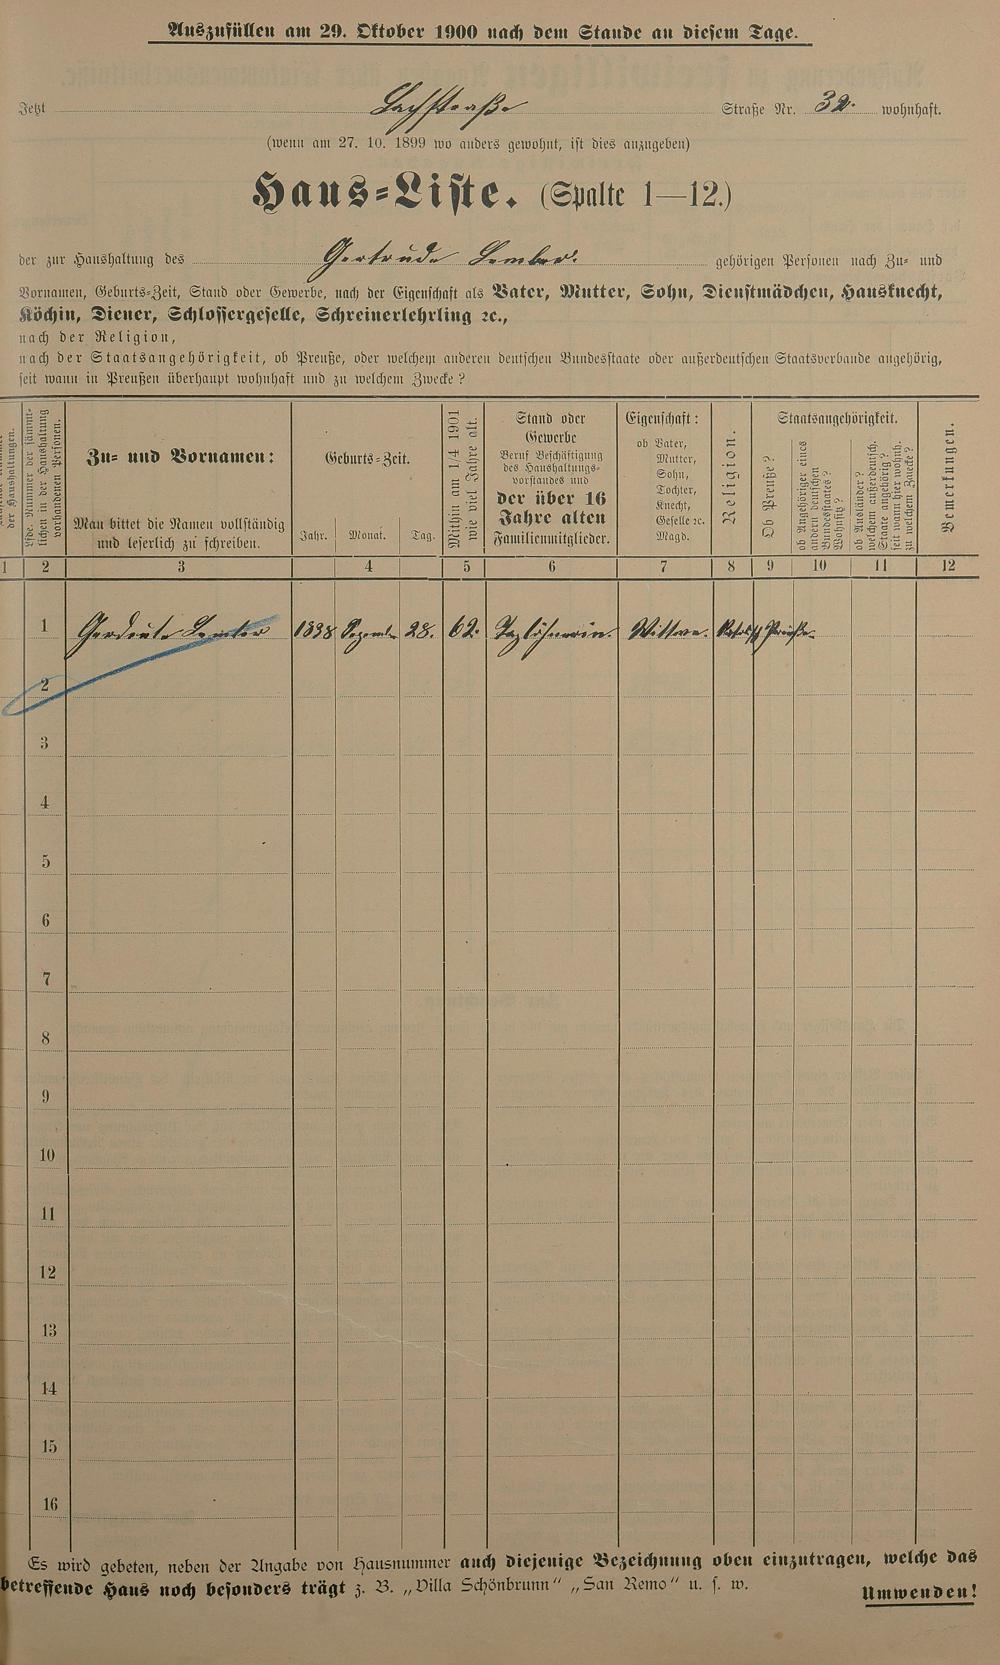 Auszufüllen am 29. Oktober 1900 nach dem Stande an diesem Tage.
Jetzt Bachstraße Straße Nr. 32. wohnhaft.
(wenn am 27. 10. 1899 wo anders gewohnt, ist dies anzugeben)
Haus-Liste. (Spalte 1—12.)
der zur Haushaltung des Gertrude Lember. gehörigen Personen nach Zu- und
Vornamen, Geburts-Zeit, Stand oder Gewerbe, nach der Eigenschaft als Vater, Mutter, Sohn, Dienstmädchen, Hausknecht,
Köchin, Diener, Schlossergeselle, Schreinerlehrling ꝛc.,
nach der Religion,
nach der Staatsangehörigkeit, ob Preuße, oder welchem anderen deutschen Bundesstaate oder außerdeutschen Staatsverbande angehörig,
seit wann in Preußen überhaupt wohnhaft und zu welchem Zwecke?
der Haushaltungen.
Lfde. Nummer der sämmt-
lichen in der Haushaltung
vorhandenen Personen.
Zu- und Vornamen:
Man bittet die Namen vollständig
und leserlich zu schreiben.
Geburts-Zeit.
Jahr. Monat. Tag.
Mithin am 1/4 1901
wie viel Jahre alt.
Stand oder
Gewerbe
Beruf Beschäftigung
des Haushaltungs-
vorstandes und
der über 16
Jahre alten
Familienmitglieder.
Eigenschaft:
ob Vater,
Mutter,
Sohn,
Tochter,
Knecht,
Geselle ꝛc.
Magd.
Religion.
Staatsangehörigkeit.
Ob Preuße?
ob Angehöriger eines
andern deutschen
Bundesstaates?
Wohnsitz?
ob Ausländer?
welchem außerdeutsch.
Staate angehörig?
seit wann hier wohnh.
zu welchem Zwecke?
Bemerkungen.
1 2 3 4 5 6 7 8 9 10 11 12
1 Gerdrute Lember 1838 Dezember 28. 62. Taglöhnerin. Wittwe. Kathol. Preuße.
2
3
4
5
6
7
8
9
10
11
12
13
14
15
16
Es wird gebeten, neben der Angabe von Hausnummer auch diejenige Bezeichnung oben einzutragen, welche das
betreffende Haus noch besonders trägt z. B. „Villa Schönbrunn“ „San Remo“ u. s. w.
Umwenden!